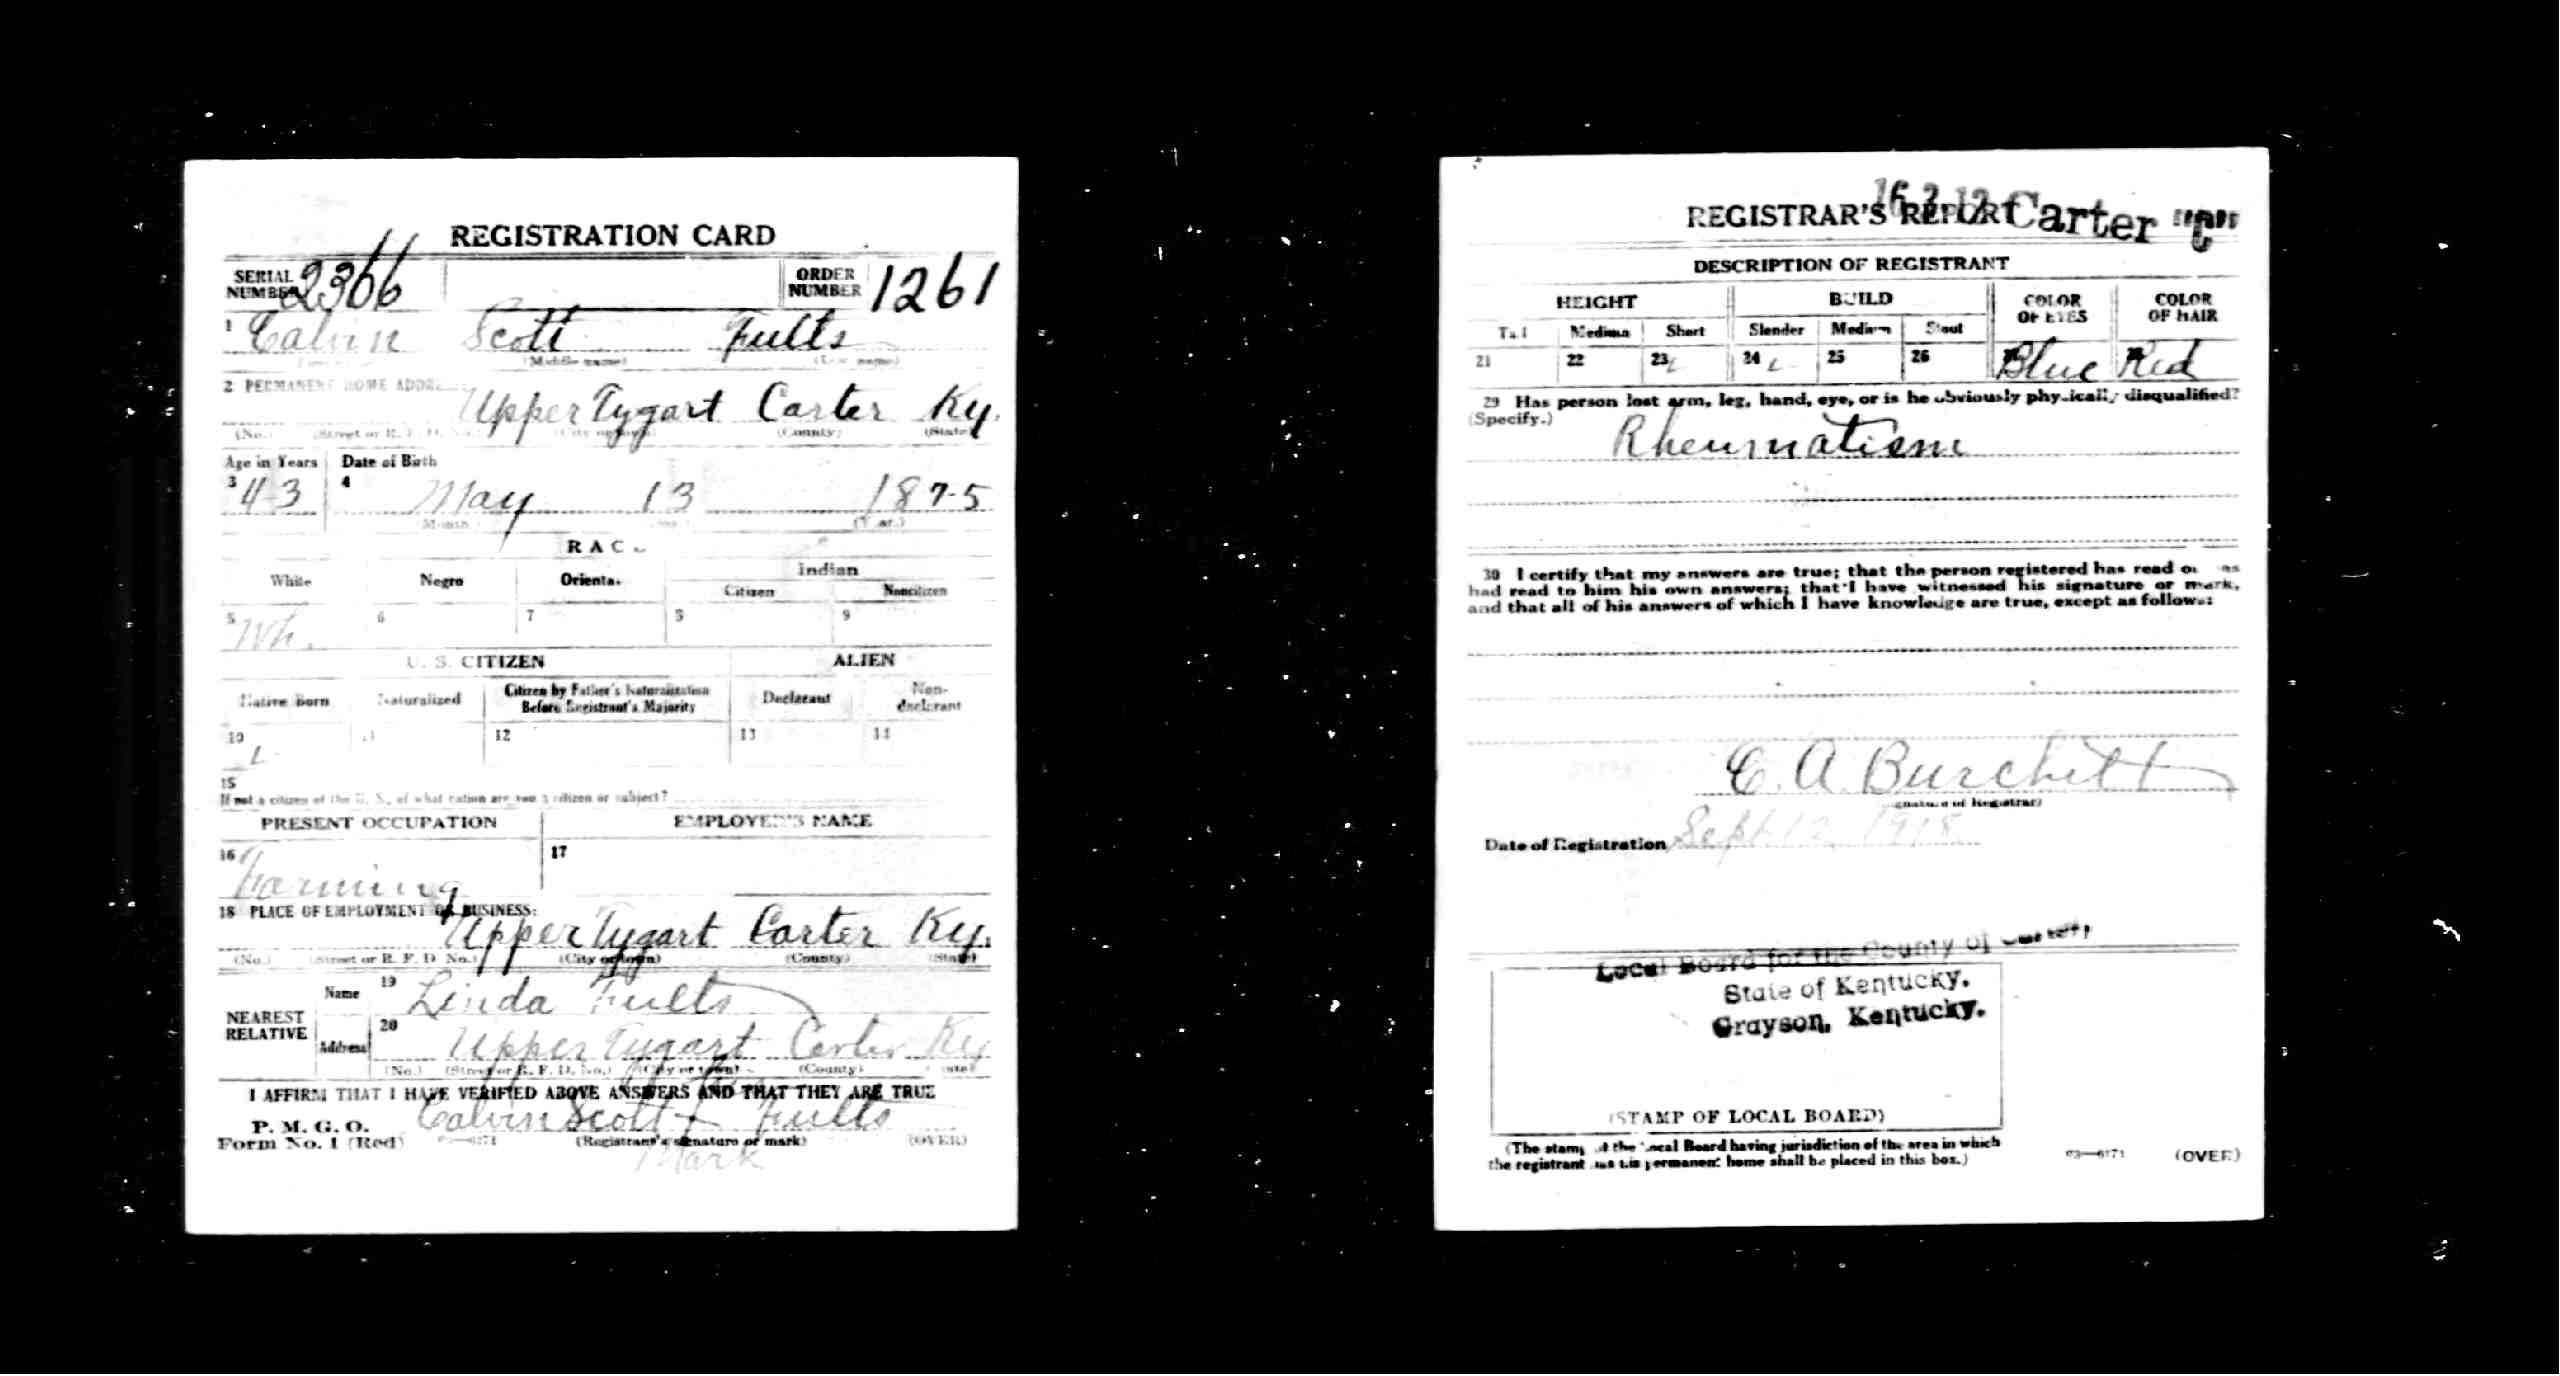 REGISTRATION CARD
SERIAL NUMBER 2366 ORDER NUMBER 1261
1 Calvin Scott Fults
(Middle name) (Last name)
2 PERMANENT HOME ADDRESS:
Upper Tygart Carter Ky.
(No.) (Street or R. F. D. No.) (City or town) (County) (State)
Age in Years Date of Birth
3 43 4 May 13 1875
(Month) (Day.) (Year.)
RACE
White Negro Oriental Indian
Citizen Noncitizen
5 Wh. 6 7 8 9
U. S. CITIZEN ALIEN
Native Born Naturalized Citizen by Father's Naturalization Before Registrant's Majority Declarant Non-declarant
10 11 12 13 14
15
If not a citizen of the U. S., of what nation are you a citizen or subject?
PRESENT OCCUPATION EMPLOYER'S NAME
16 Farming 17
18 PLACE OF EMPLOYMENT OR BUSINESS:
Upper Tygart Carter Ky.
(No.) (Street or R. F. D. No.) (City or town) (County) (State)
NEAREST RELATIVE Name 19 Linda Fults
Address 20 Upper Tygart Carter Ky
(No.) (Street or R. F. D. No.) (City or town) (County) (State)
I AFFIRM THAT I HAVE VERIFIED ABOVE ANSWERS AND THAT THEY ARE TRUE
P. M. G. O.
Form No. 1 (Red)
Calvin Scott X Fults
(Registrant's signature or mark) (OVER)
Mark
REGISTRAR'S REPORT
16 2 12 Carter "C"
DESCRIPTION OF REGISTRANT
HEIGHT BUILD COLOR OF EYES COLOR OF HAIR
Tall Medium Short Slender Medium Stout
21 22 23 24 25 26 Blue Red
29 Has person lost arm, leg, hand, eye, or is he obviously physically disqualified?
(Specify.)
Rheumatism
30 I certify that my answers are true; that the person registered has read or has
had read to him his own answers; that I have witnessed his signature or mark,
and that all of his answers of which I have knowledge are true, except as follows:
C. A. Burchett
(Signature of Registrar)
Date of Registration Sept 12 1918
Local Board for the County of Carter,
State of Kentucky.
Grayson, Kentucky.
(STAMP OF LOCAL BOARD)
(The stamp of the Local Board having jurisdiction of the area in which
the registrant has his permanent home shall be placed in this box.)
03—6171 (OVER)